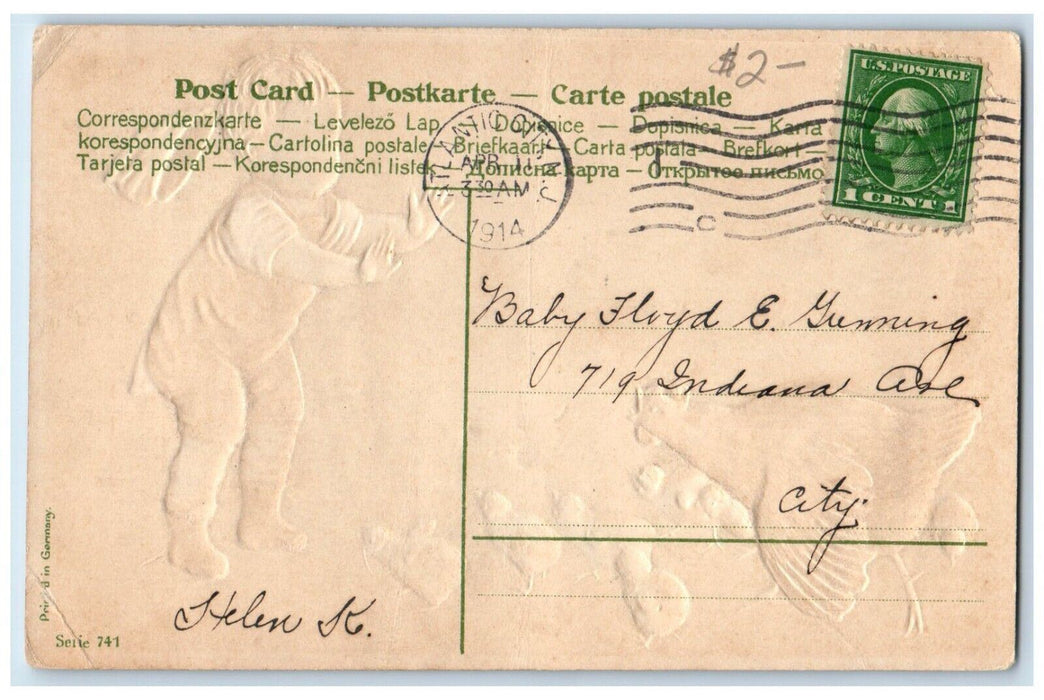 $2—
U.S. POSTAGE
1 CENT 1
Post Card — Postkarte — Carte postale
Correspondenzkarte — Levelező Lap — Dopisnice — Dopisnica — Karta
korespondencyjna — Cartolina postale — Briefkaart — Carta postala — Brefkort —
Tarjeta postal — Korespondenčni listek — Дописна карта — Открытое письмо
ATLANTIC CITY, N.J.
APR 11
3 30 AM
1914
Baby Floyd E. Gunning
719 Indiana Ave
City
Helen K.
Printed in Germany.
Serie 741